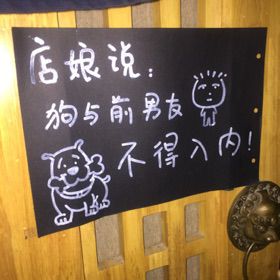 店娘说：
狗与前男友
不得入内！